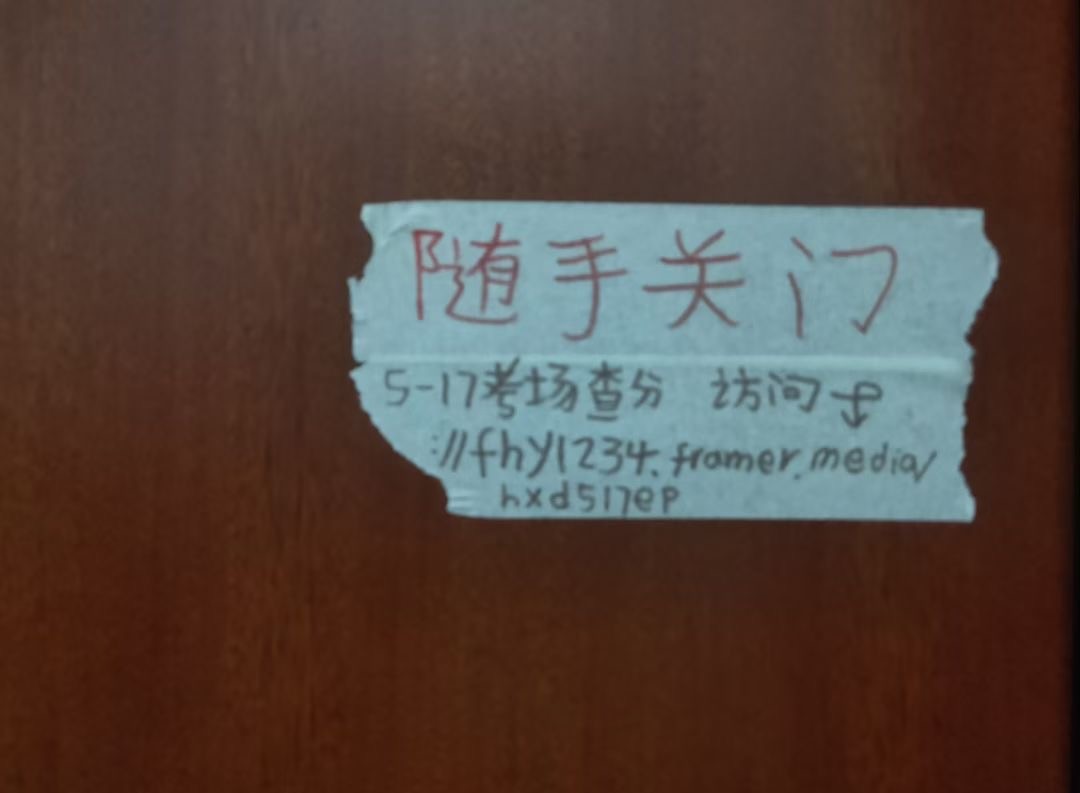 随手关门
5-17考场查分 访问
://fhy1234.framer.media/
hxd517ep